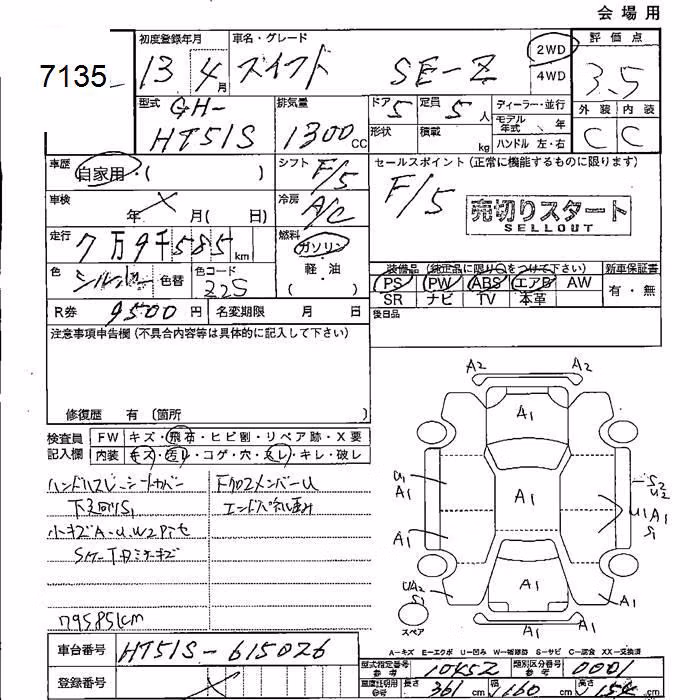 会場用
7135
初度登録年月
13 4月
車名・グレード
スイフト SE-Z
2WD
4WD
評価点
3.5
型式
GH-
HT51S
排気量
1300CC
ドア 5
定員 5人
形状
積載 kg
ディーラー・並行
モデル年式 年
ハンドル 左・右
外装 内装
C C
車歴
自家用・( )
シフト F/5
セールスポイント(正常に機能するものに限ります)
F/5
売切りスタート
SELLOUT
車検
年 月( 日)
冷房 A/C
走行
7万9千585km
燃料
ガソリン
軽・油
( )
色
シルバー
色替
色コード
22S
装備品(純正品に限り○をつけて下さい)
PS PW ABS エアB AW
SR ナビ TV 本革
新車保証書
有・無
R券 9500円
名変期限 月 日
後日品
注意事項申告欄(不具合内容等は具体的に記入して下さい)
修復歴 有(箇所 )
検査員記入欄
FW キズ・飛石・ヒビ割・リペア跡・X要
内装 キズ・汚レ・コゲ・穴・スレ・キレ・破レ
ハンドルスレ シートカバー
下廻りS1
小キズA・U・W2
FクロスメンバーU
エンドパネル歪み
79585km
A2 A2
A1
U1
A1
A1
A1
S2
U2
U1 A1
S1
A1
UA2
S1
A1
A1
スペア
A1
A1
A-キズ E-エクボ U-凹み W-補修跡 S-サビ C-腐食 XX-交換済
車台番号
HT51S-615026
登録番号
型式指定番号 参考 10452
類別区分番号 参考 0001
車庫証明用 参考 長さ 361cm 幅 160cm 高さ 154cm